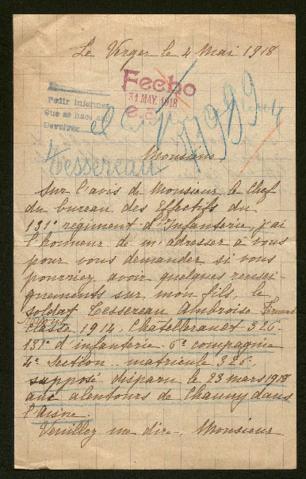 Le Verger le 4 Mai 1918
Fecho
31 MAY. 1918
Pedir informes
Que se hace
Devolver
el C
71989
Tessereau
Monsieur
Sur l'avis de Monsieur le Chef
du bureau des Effectifs du
131e régiment d'Infanterie, j'ai
l'honneur de m'adresser à vous
pour vous demander si vous
pourriez avoir quelques rensei-
gnements sur mon fils, le
soldat Tessereau Ambroise
classe 1914, Chatellerault 326
131e d'infanterie 6e compagnie
4e section matricule 326
supposé disparu le 23 mars 1918
aux alentours de Chauny dans
l'Aisne.
Veuillez me dire, Monsieur